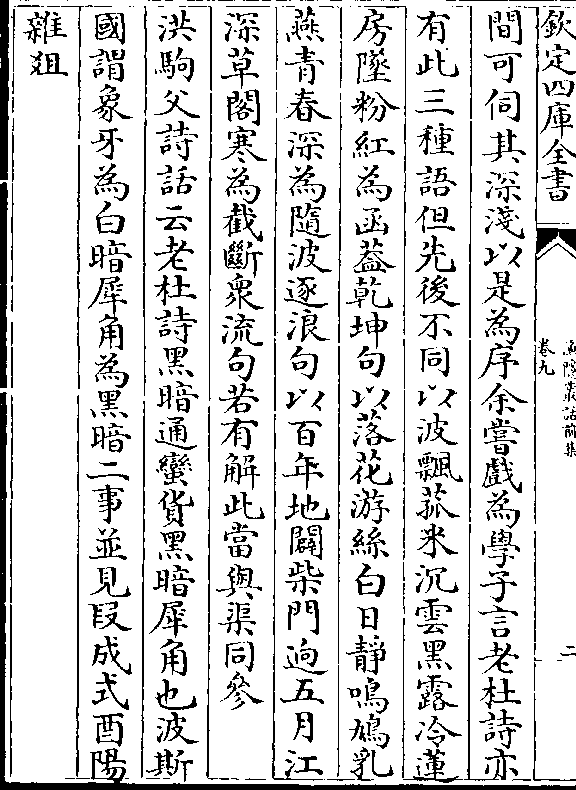 欽定四庫全書
漁隱叢話前集
卷九
二
間可伺其深淺以是為序余嘗戲為學子言老杜詩亦
有此三種語但先後不同以波飄菰米沉雲黑露冷蓮
房墜粉紅為函葢乾坤句以落花游絲白日靜鳴鳩乳
燕青春深為隨波逐浪句以百年地闢柴門逈五月江
深草閣寒為截斷衆流句若有解此當與渠同參
洪駒父詩話云老杜詩黑暗通蠻貨黑暗犀角也波斯
國謂象牙為白暗犀角為黑暗二事並見段成式酉陽
雜俎